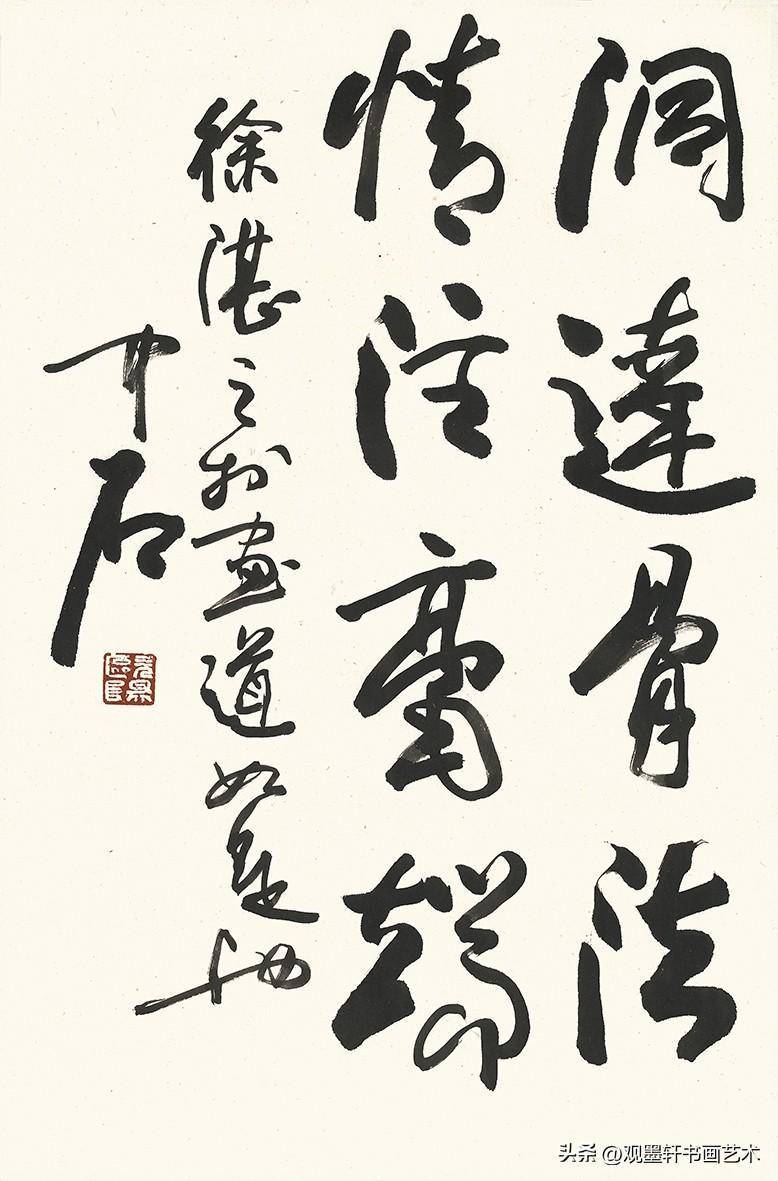 洞達骨法
情注毫端
徐湛之於畫道如是也
中石
头条 @观墨轩书画艺术